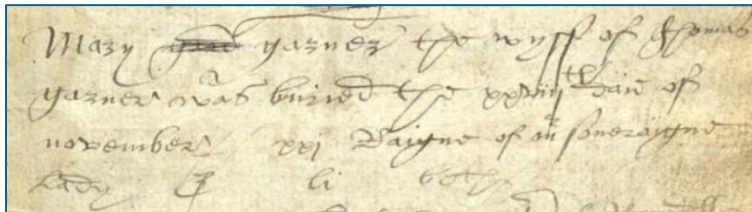 Mary garner the wyff of Thomas
garner was buried the xxviij th daie of
november xxj Raigne of our soveraigne
Lady